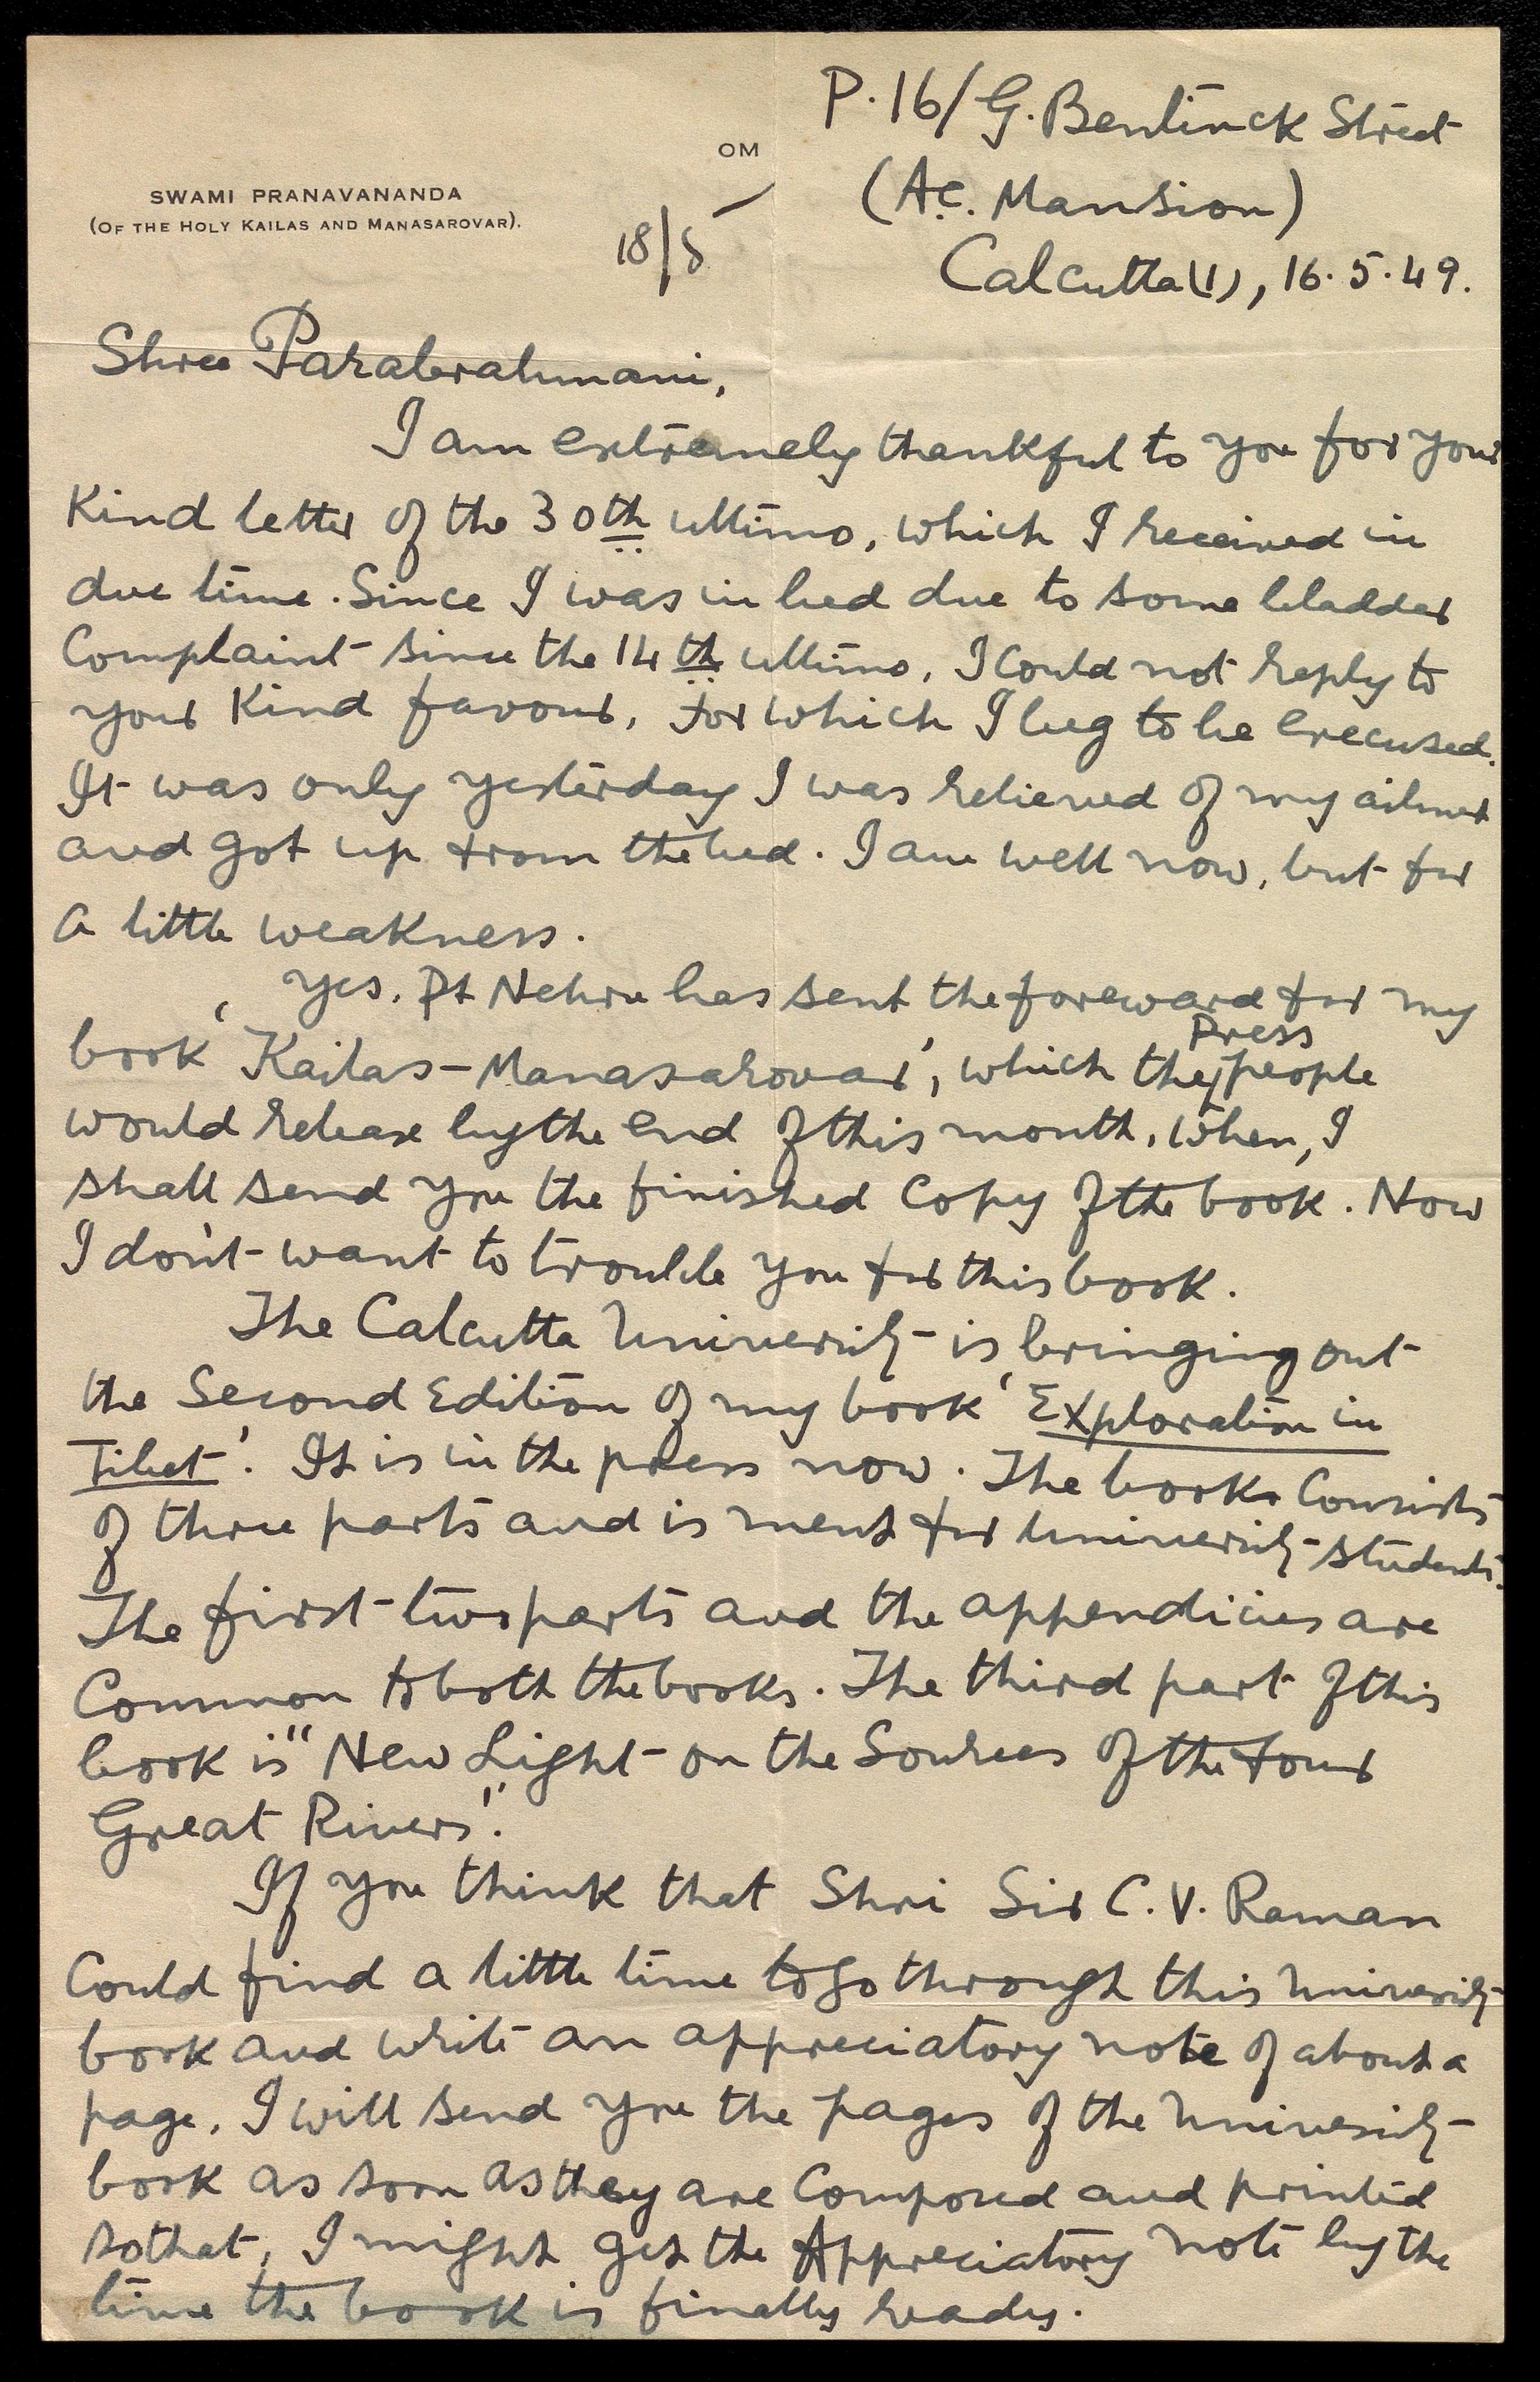 OM
SWAMI PRANAVANANDA
(OF THE HOLY KAILAS AND MANASAROVAR).
18/5
P.16/G. Bentinck Street
(A.C. Mansion)
Calcutta (1), 16.5.49.
Shree Parabrahmani,
I am extremely thankful to you for your
Kind letter of the 30th ultimo, which I received in
due time. Since I was in bed due to some bladder
Complaint since the 14th ultimo, I could not reply to
your Kind favour, for which I beg to be execused.
It was only yesterday I was relieved of my ailment
and got up from the bed. I am well now, but for
a little weakness.
Yes, Pt Nehru has sent the foreward for my
book 'Kailas-Manasarovar', which the press people
would release by the end of this month, when, I
shall send you the finished copy of the book. Now
I don't want to trouble you for this book.
The Calcutta University is bringing out
the Second Edition of my book 'Exploration in
Tibet'. It is in the press now. The book consists
of three parts and is ment for University students.
The first two parts and the appendicies are
Common to both the books. The third part of this
book is "New Light on the Sources of the four
Great Rivers".
If you think that Shri Sir C.V. Raman
Could find a little time to go through this University
book and write an appreciatory note of about a
page, I will send you the pages of the University
book as soon as they are Composed and printed
so that, I might get the Appreciatory note by the
time the book is finally ready.